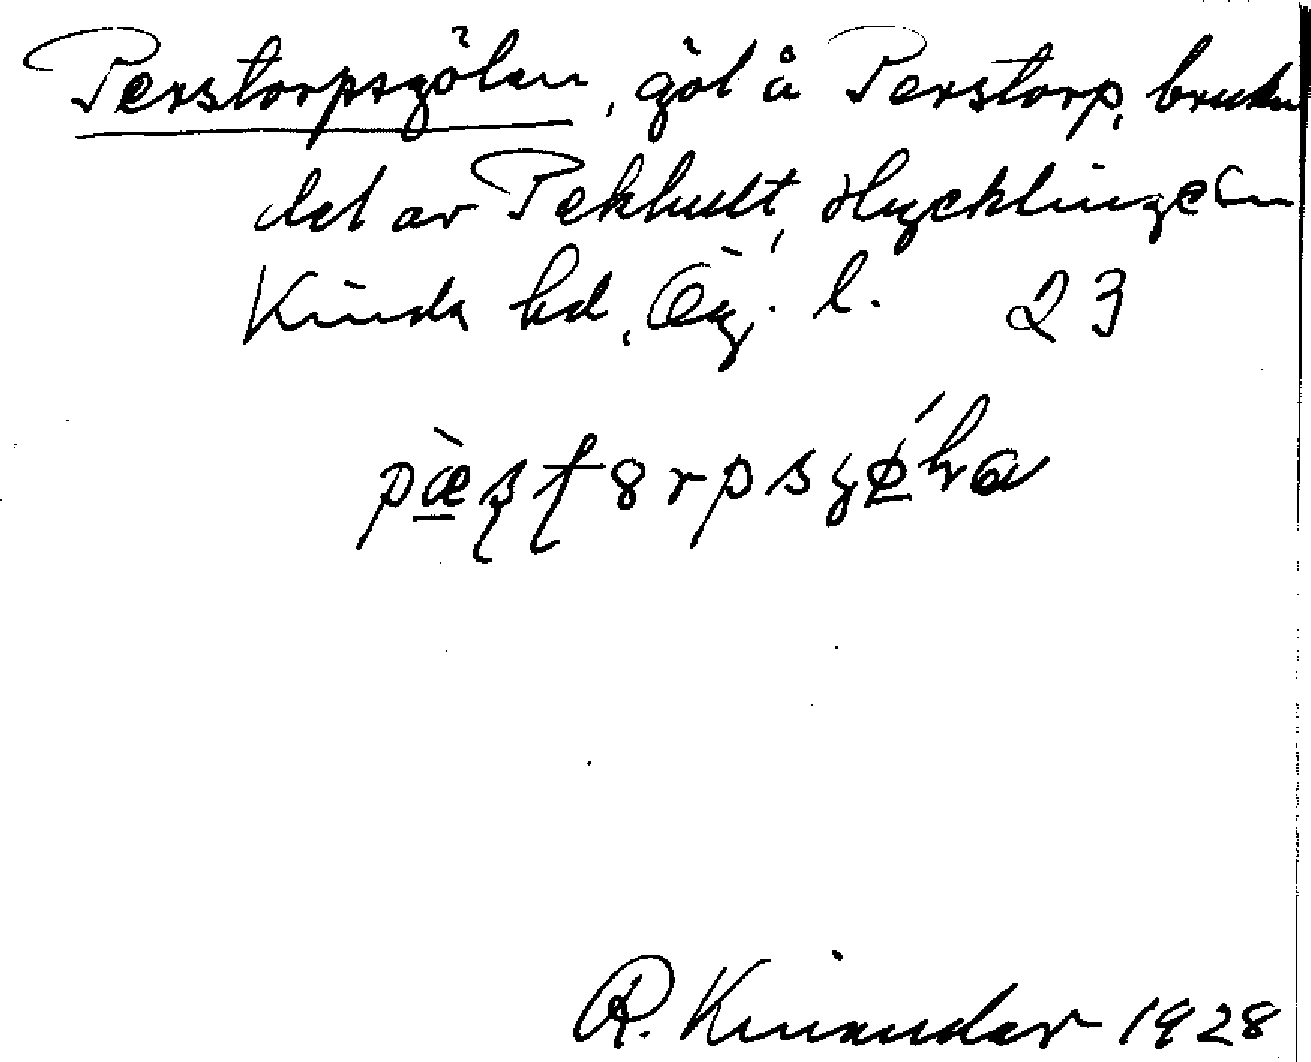 Perstorpsgölen, göl å Perstorp, bruka
del av Pekhult, Hycklinge sn
Kinda hd, Ög. l. 23
R. Kinander 1928